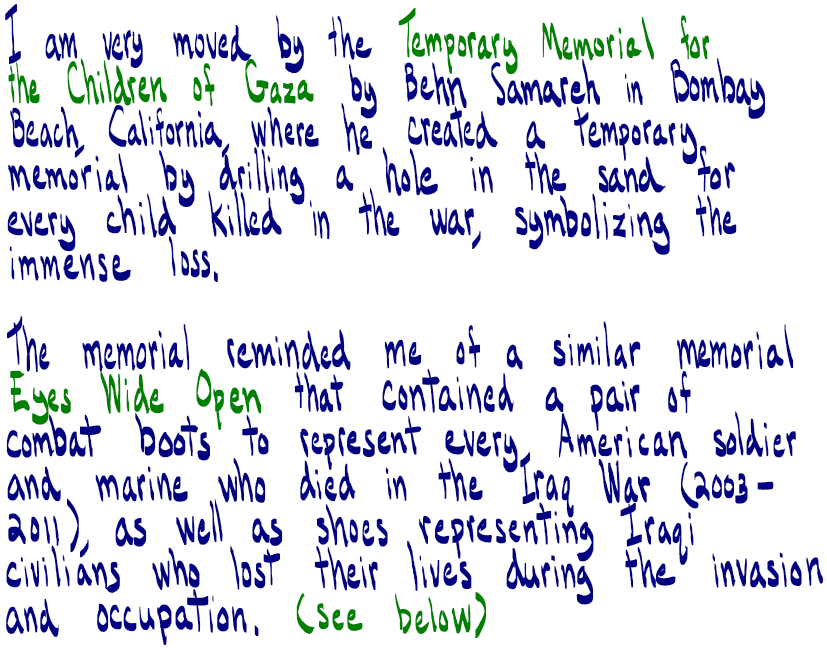 I am very moved by the Temporary Memorial for
the Children of Gaza by Behn Samareh in Bombay
Beach, California, where he created a temporary
memorial by drilling a hole in the sand for
every child killed in the war, symbolizing the
immense loss.
The memorial reminded me of a similar memorial
Eyes Wide Open that contained a pair of
combat boots to represent every American soldier
and marine who died in the Iraq War (2003-
2011), as well as shoes representing Iraqi
civilians who lost their lives during the invasion
and occupation. (see below)